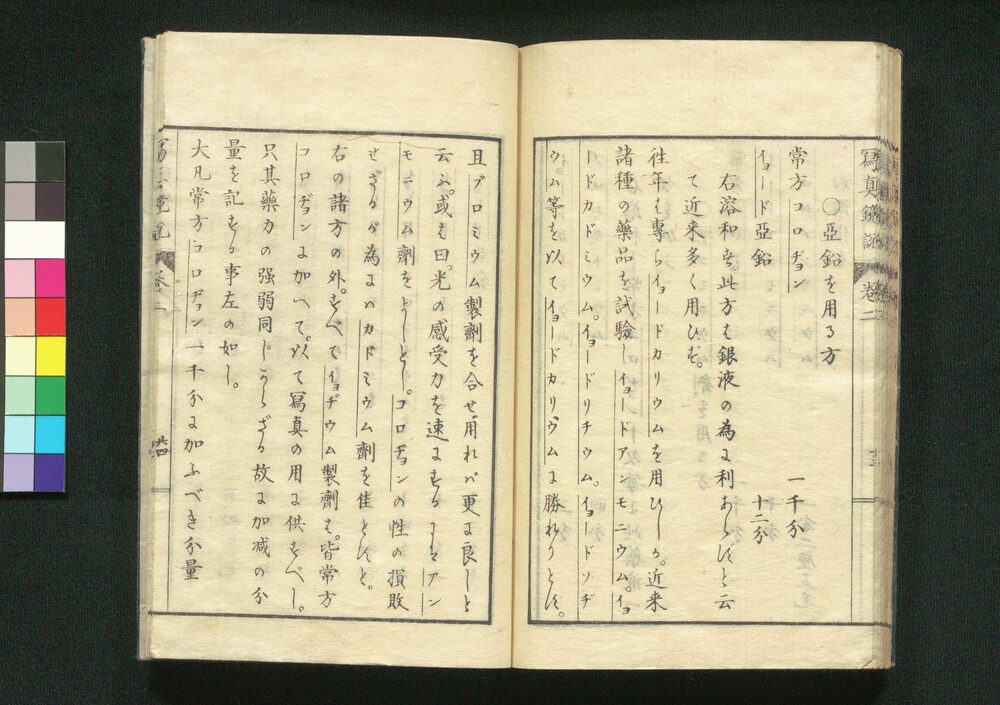 寫真鏡説 巻二
〇亞鉛を用る方
常方コロヂョン 一千分
イョード亞鉛 十二分
右溶和す。此方は銀液の為に利あらずと云
て近来多く用ひず。
往年は専らイョードカリウムを用ひしが。近来
諸種の藥品を試驗しイョードアンモニウム。イョ
ードカドミウム。イョードリチウム。イョードソヂ
ウム等を以てイョードカリウムに勝れりとす。
且ブロミウム製劑を合せ用れバ更に良しと
云ふ。或は曰。光の感受力を速にするにはアン
モニウム劑をよしとし。コロヂョンの性の損敗
せざるが為にハカドミウム劑を佳とすと。
右の諸方の外。すべてイョヂウム製劑は。皆常方
コロヂョンに加へて。以て寫真の用に供すべし。
只其藥力の强弱同じからざる故に加减の分
量を記する事左の如し。
大凡常方コロヂョン一千分に加ふべき分量